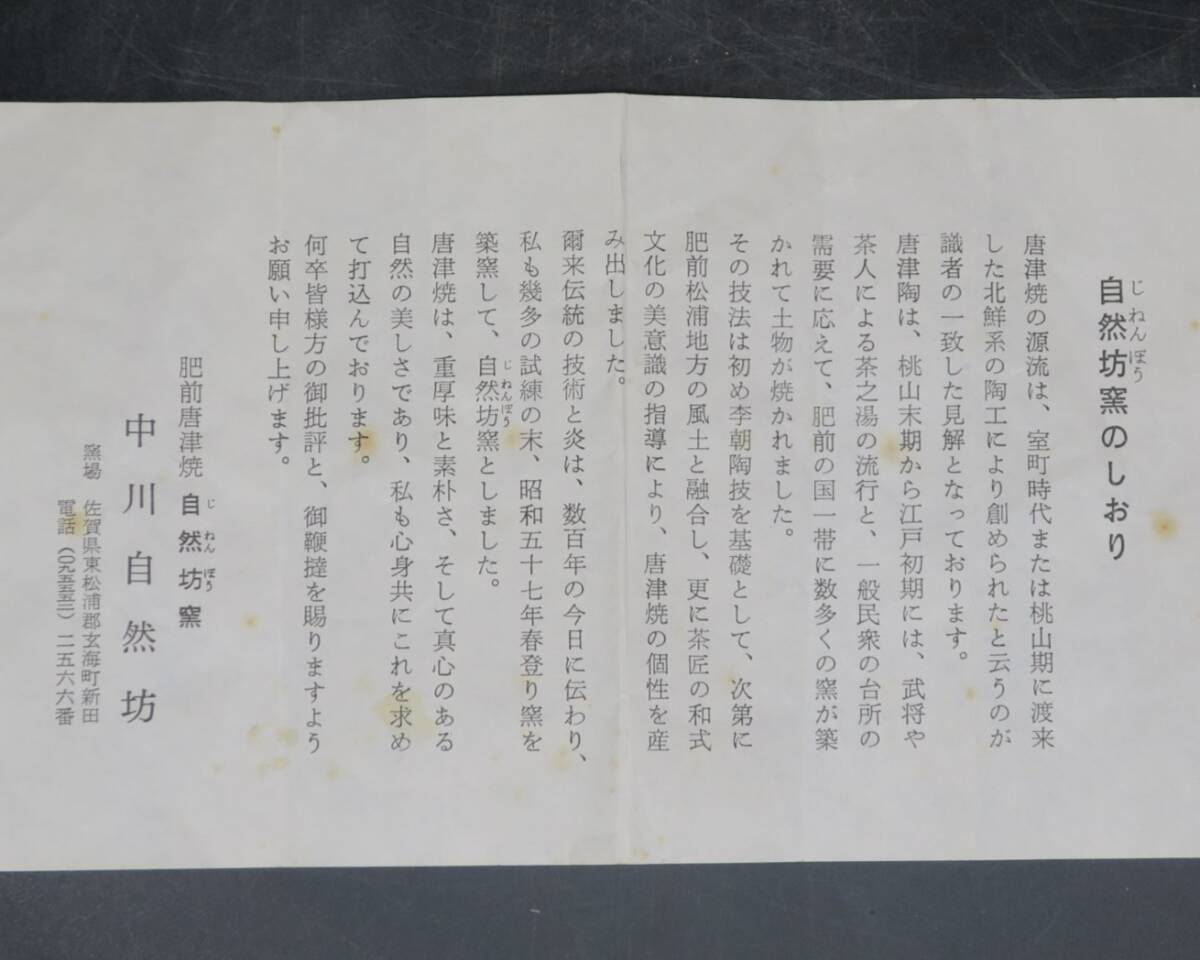 自然坊窯のしおり
じねんぼう
唐津焼の源流は、室町時代または桃山期に渡来
した北鮮系の陶工により創められたと云うのが
識者の一致した見解となっております。
唐津陶は、桃山末期から江戸初期には、武将や
茶人による茶之湯の流行と、一般民衆の台所の
需要に応えて、肥前の国一帯に数多くの窯が築
かれて土物が焼かれました。
その技法は初め李朝陶技を基礎として、次第に
肥前松浦地方の風土と融合し、更に茶匠の和式
文化の美意識の指導により、唐津焼の個性を産
み出しました。
爾来伝統の技術と炎は、数百年の今日に伝わり、
私も幾多の試練の末、昭和五十七年春登り窯を
築窯して、自然坊窯としました。
じねんぼう
唐津焼は、重厚味と素朴さ、そして真心のある
自然の美しさであり、私も心身共にこれを求め
て打込んでおります。
何卒皆様方の御批評と、御鞭撻を賜りますよう
お願い申し上げます。
肥前唐津焼 自然坊窯
じねんぼう
中川自然坊
窯場 佐賀県東松浦郡玄海町新田
電話(〇九五五三)二五六六番